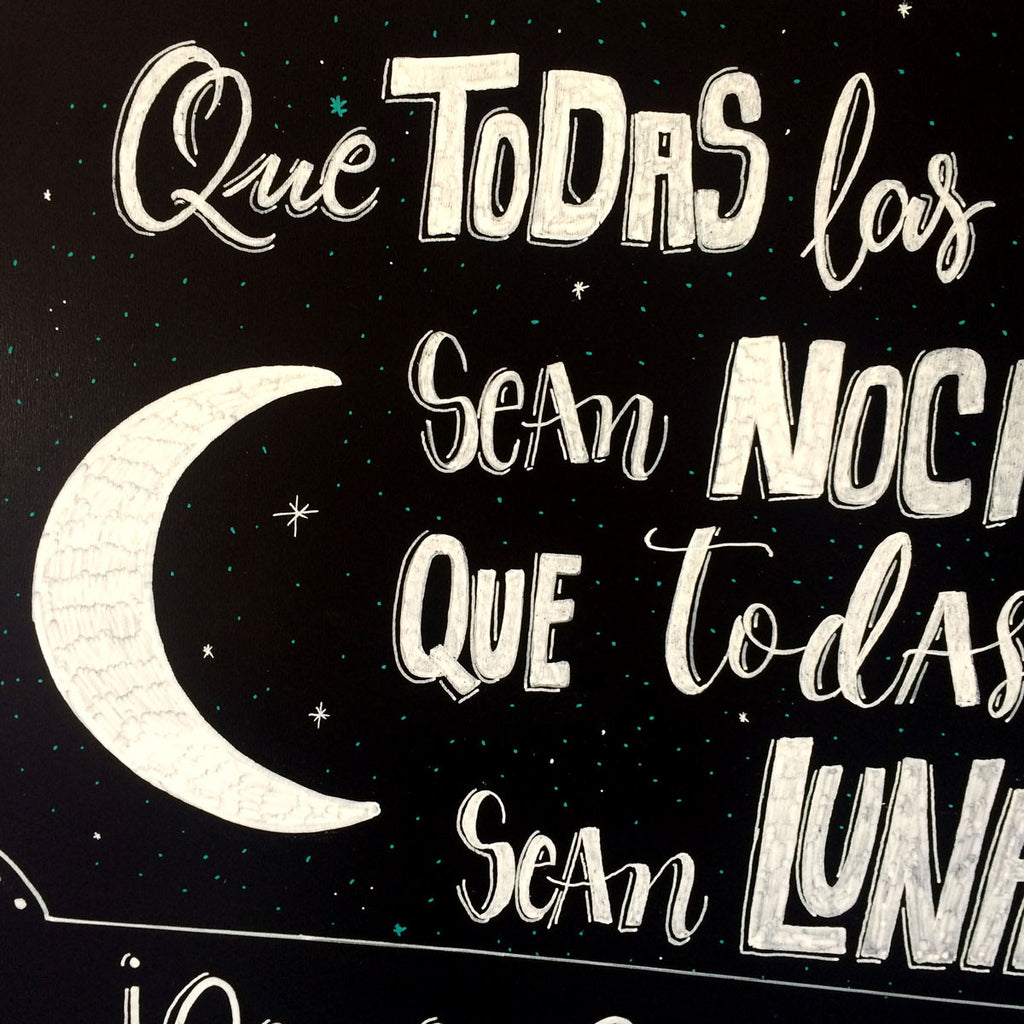 Que TODAS las
SeAn NOCH
QUE todAs
SeAn LUNA